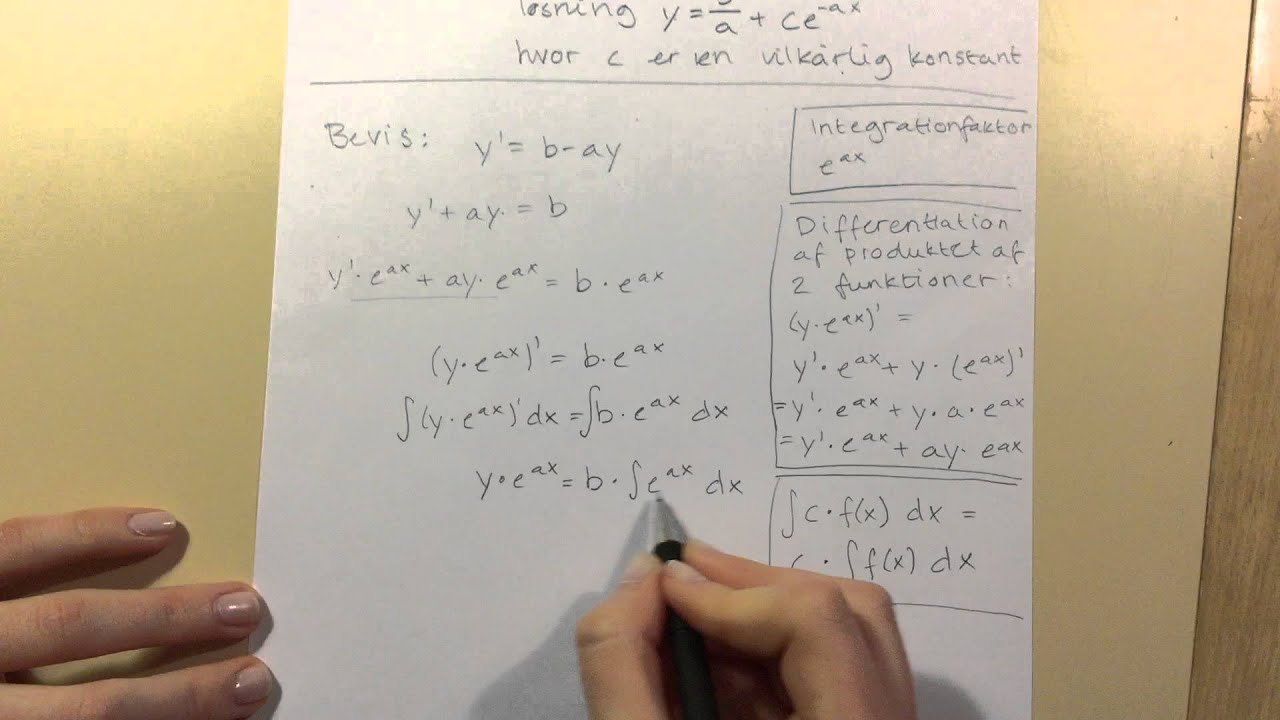 løsning y = b/a + ce^-ax
hvor c er en vilkårlig konstant
Bevis: y' = b-ay
y' + ay = b
y'·e^ax + ay·e^ax = b·e^ax
(y·e^ax)' = b·e^ax
∫(y·e^ax)'dx = ∫b·e^ax dx
y·e^ax = b·∫e^ax dx
Integrationfaktor
e^ax
Differentiation
af produktet af
2 funktioner:
(y·e^ax)' =
y'·e^ax + y·(e^ax)'
= y'·e^ax + y·a·e^ax
= y'·e^ax + ay·e^ax
∫c·f(x) dx =
c·∫f(x) dx